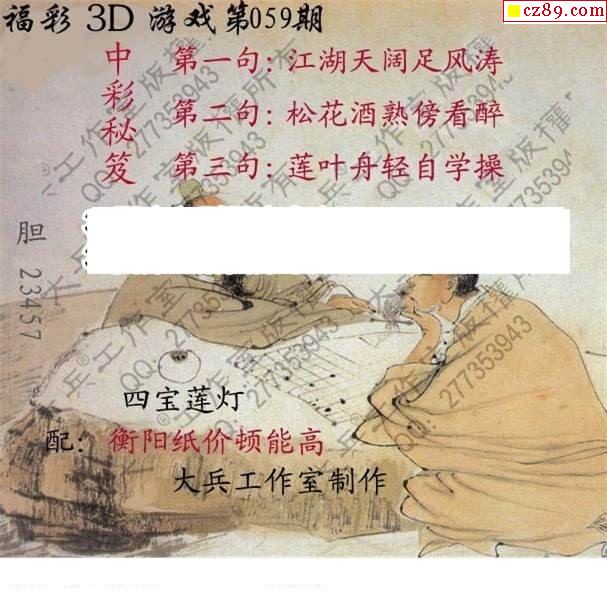 福彩 3D 游戏第059期
cz89.com
中彩秘笈
第一句:江湖天阔足风涛
第二句:松花酒熟傍看醉
第三句:莲叶舟轻自学操
胆 23457
四宝莲灯
配: 衡阳纸价顿能高
大兵工作室制作
大兵®工作室版权所有
QQ: 277353943